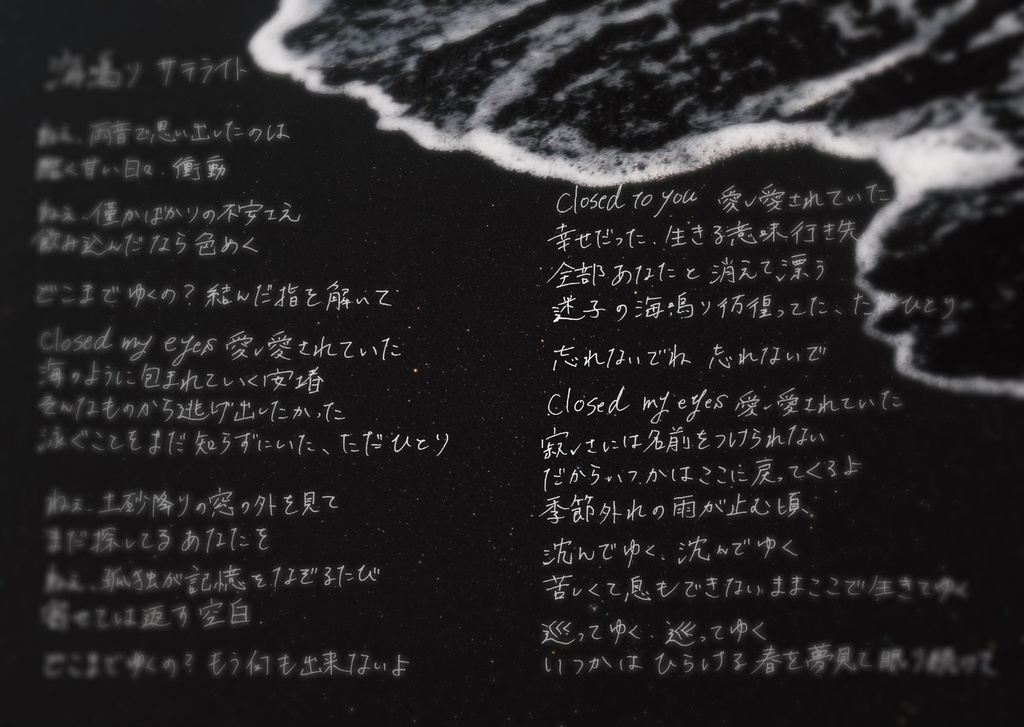 海鳴りサテライト
ねぇ、雨音で思い出したのは
酷く甘い日々、衝動
ねぇ、僅かばかりの不安さえ
飲み込んだなら色めく
どこまでゆくの?結んだ指を解いて
closed my eyes 愛し愛されていた
海のように包まれていく安堵
そんなものから逃げ出したかった
泳ぐことをまだ知らずにいた、ただひとり
ねぇ、土砂降りの窓の外を見て
まだ探してるあなたを
ねぇ、孤独が記憶をなぞるたび
寄せては返す空白
どこまでゆくの?もう何も出来ないよ
closed to you 愛し愛されていた
幸せだった、生きる意味行き失
全部あなたと消えて漂う
迷子の海鳴り彷徨ってた、ただひとり
忘れないでね 忘れないで
closed my eyes 愛し愛されていた
寂しさには名前をつけられない
だからいつかはここに戻ってくるよ
季節外れの雨が止む頃、
沈んでゆく、沈んでゆく
苦しくて息もできないままここで生きてゆく
巡ってゆく、巡ってゆく
いつかはひらける春を夢見て眠り